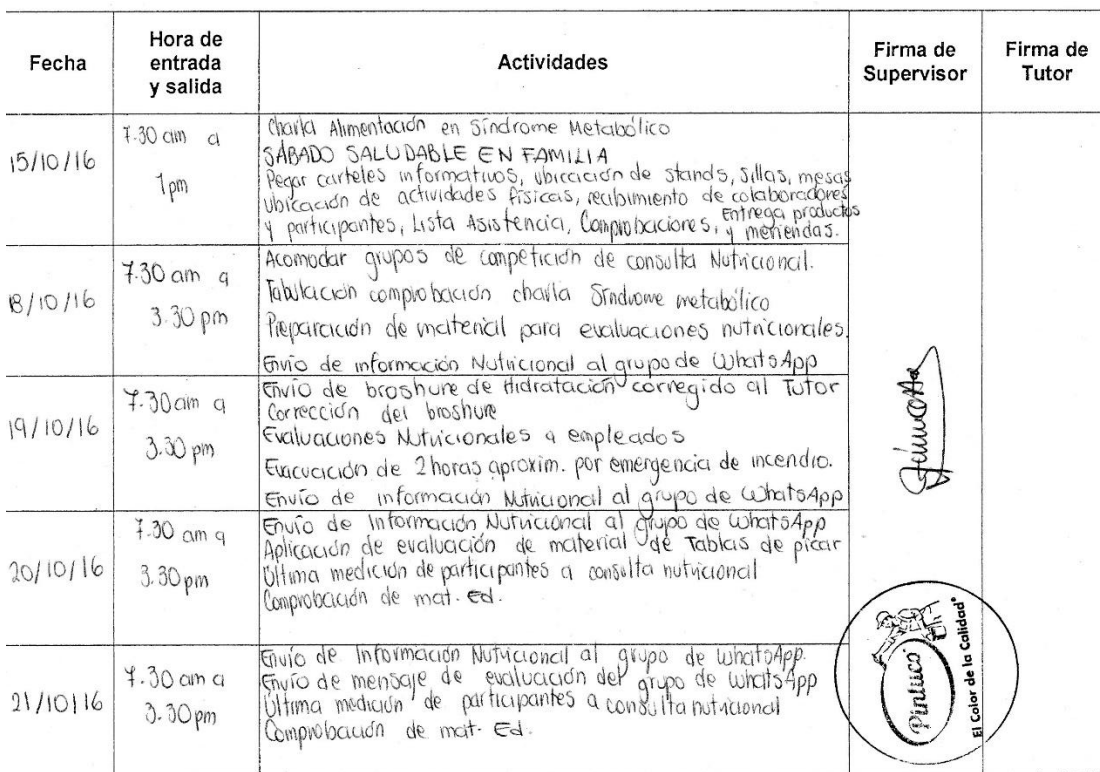 Fecha
Hora de
entrada
y salida
Actividades
Firma de
Supervisor
Firma de
Tutor
15/10/16
7.30 am a
1pm
Charla Alimentación en Síndrome Metabólico
SÁBADO SALUDABLE EN FAMILIA
Pegar carteles informativos, ubicación de stands, sillas, mesas
ubicación de actividades físicas, recibimiento de colaboradores
y participantes, Lista Asistencia, Comprobaciones, Entrega productos
y meriendas.
18/10/16
7.30 am a
3.30 pm
Acomodar grupos de competición de consulta Nutricional.
Tabulación comprobación charla Síndrome metabólico
Preparación de material para evaluaciones nutricionales.
Envío de información Nutricional al grupo de WhatsApp
19/10/16
7.30 am a
3.30 pm
Envío de broshure de Hidratación corregido al Tutor
Corrección del broshure
Evaluaciones Nutricionales a empleados
Evacuación de 2 horas aproxim. por emergencia de incendio.
Envío de información Nutricional al grupo de WhatsApp
20/10/16
7.30 am a
3.30 pm
Envío de Información Nutricional al grupo de WhatsApp
Aplicación de evaluación de material de Tablas de picar
Última medición de participantes a consulta nutricional
Comprobación de mat. Ed.
21/10/16
7.30 am a
3.30 pm
Envío de Información Nutricional al grupo de WhatsApp.
Envío de mensaje de evaluación del grupo de WhatsApp
Última medición de participantes a consulta nutricional
Comprobación de mat. Ed.
Pintuco
El Color de la Calidad